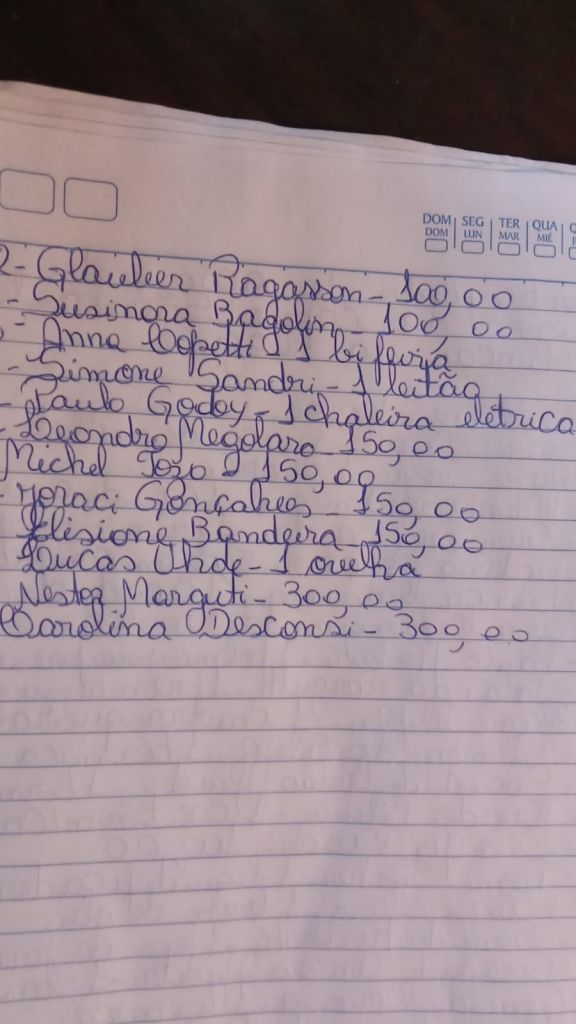 DOM SEG TER QUA
DOM LUN MAR MIÉ
2- Glaulier Ragasson - 100,00
- Susinora Bagolin - 100,00
- Anna Copetti - 1 bifeira
- Simone Sandri - 1 leitão
- Paulo Godoy - 1 chaleira eletrica
- Leondro Megolaro 150,00
Michel Tozo - 150,00
- Joraci Gonçalves - 150,00
Elisione Bandeira 150,00
Lucas Uhde - 1 ovelha
Nester Marguti - 300,00
Carolina Desconsi - 300,00